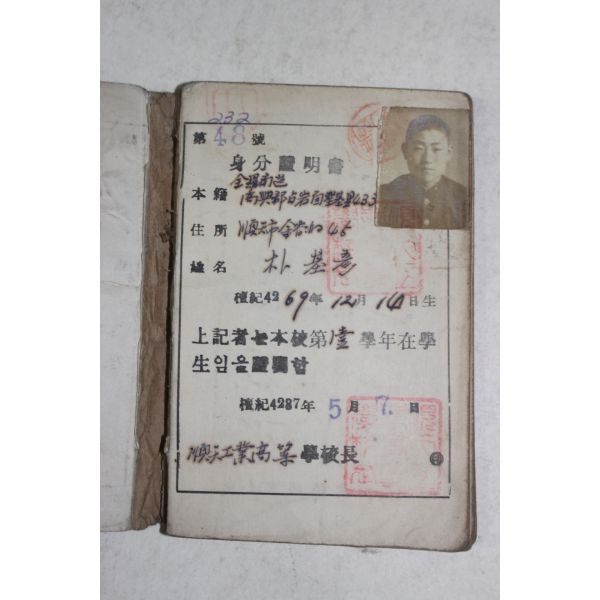 232
第 48 號
身分證明書
全羅南道
本籍 高興郡占岩面
住所 順天市 45
姓名 朴基
檀紀42 69年 12月 14日生
上記者는本校第 壹 學年在學
生임을證明함
檀紀4287年 5月 7日
順天工業高等 學校長